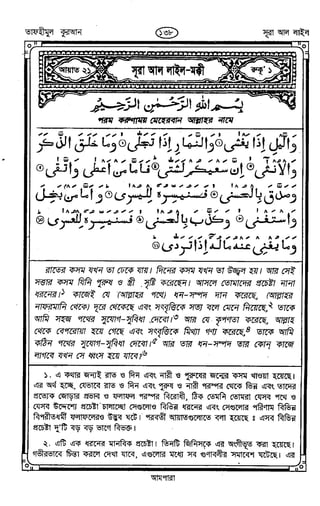 তাফহীমুল কুরআন
১৩৮
সূরা আল লাইল
আয়াত ২১
সূরা আল লাইল-মক্কী
রুকূ' ১
بِسْمِ اللهِ الرَّحْمٰنِ الرَّحِيْمِ
পরম করুণাময় মেহেরবান আল্লাহর নামে
وَالَّيْلِ إِذَا يَغْشٰى ۝ وَالنَّهَارِ إِذَا تَجَلّٰى ۝ وَمَا خَلَقَ الذَّكَرَ
وَالْأُنْثٰى ۝ إِنَّ سَعْيَكُمْ لَشَتّٰى ۝ فَأَمَّا مَنْ أَعْطٰى وَاتَّقٰى ۝
وَصَدَّقَ بِالْحُسْنٰى ۝ فَسَنُيَسِّرُهُ لِلْيُسْرٰى ۝ وَأَمَّا مَنْ بَخِلَ
وَاسْتَغْنٰى ۝ وَكَذَّبَ بِالْحُسْنٰى ۝ فَسَنُيَسِّرُهُ لِلْعُسْرٰى ۝
وَمَا يُغْنِيْ عَنْهُ مَالُهُ إِذَا تَرَدّٰى ۝
রাতের কসম যখন তা ঢেকে যায়। দিনের কসম যখন তা উজ্জ্বল হয়। আর সেই
সত্তার কসম যিনি পুরুষ ও স্ত্রী সৃষ্টি করেছেন। আসলে তোমাদের প্রচেষ্টা নানা
ধরনের।১ কাজেই যে (আল্লাহর পথে) ধন-সম্পদ দান করেছে, (আল্লাহর
নাফরমানি থেকে) দূরে থেকেছে এবং সৎবৃত্তিকে সত্য বলে মেনে নিয়েছে,২ তাকে
আমি সহজ পথের সুযোগ-সুবিধা দেবো।৩ আর যে কৃপণতা করেছে, আল্লাহ
থেকে বেপরোয়া হয়ে গেছে এবং সৎবৃত্তিকে মিথ্যা গণ্য করেছে,৪ তাকে আমি
কঠিন পথের সুযোগ-সুবিধা দেবো।৫ আর তার ধন-সম্পদ তার কোন্ কাজে
লাগবে যখন সে ধ্বংস হয়ে যাবে।৬
১. এ কথার জন্যই রাত ও দিন এবং নারী ও পুরুষের জন্মের কসম খাওয়া হয়েছে।
এর অর্থ হচ্ছে, যেভাবে রাত ও দিন এবং পুরুষ ও নারী পরস্পর থেকে ভিন্ন এবং তাদের
প্রত্যেক জোড়ার প্রভাব ও ফলাফল পরস্পর বিরোধী, ঠিক তেমনি তোমরা যেসব পথে ও
যেসব উদ্দেশ্যে প্রচেষ্টা চালাচ্ছো সেগুলোও বিভিন্ন ধরনের এবং সেগুলোর পরিণাম বিভিন্ন
বিপরীতধর্মী ফলাফলেরও উদ্ভব ঘটে। পরবর্তী আয়াতগুলোতে বলা হয়েছে ঃ এসব বিভিন্ন
প্রচেষ্টা দু'টি বড় বড় ভাগে বিভক্ত।
২. এটি এক ধরনের মানবিক প্রচেষ্টা। তিনটি জিনিসকে এর অংগীভূত করা হয়েছে।
গভীরভাবে চিন্তা করলে দেখা যাবে, এগুলোর মধ্যে সব গুণাবলীর সমাবেশ ঘটেছে। এর
আমপারা